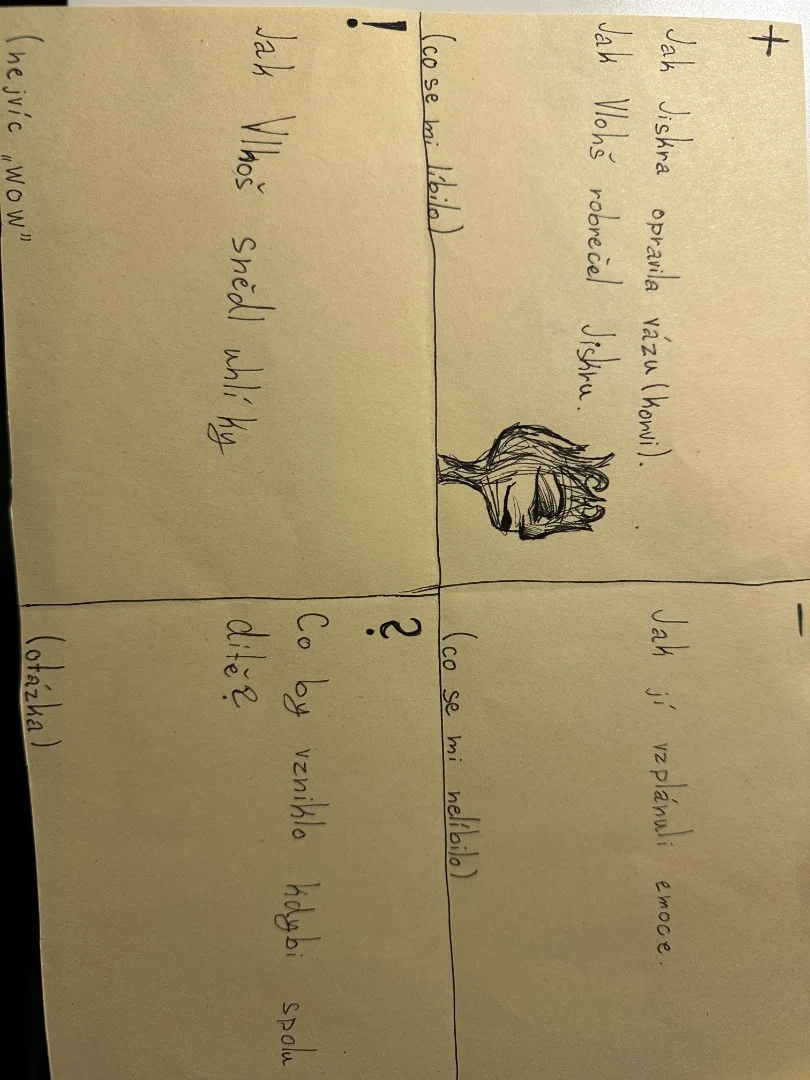 +
Jak Jiskra opravila vázu (konvi).
Jak Vlohš robrečel Jiskru.
(co se mi líbilo)
-
Jak jí vzplánuli emoce.
(co se mi nelíbilo)
!
Jak Vlhoš snědl uhlíky
(nejvíc „wow"
?
Co by vzniklo kdybi spolu
dítě?
(otázka)